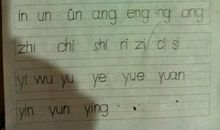 in un ün ang eng ing ong
zhi chi shi ri zi ci si
yi wu yu ye yue yuan
yin yun ying